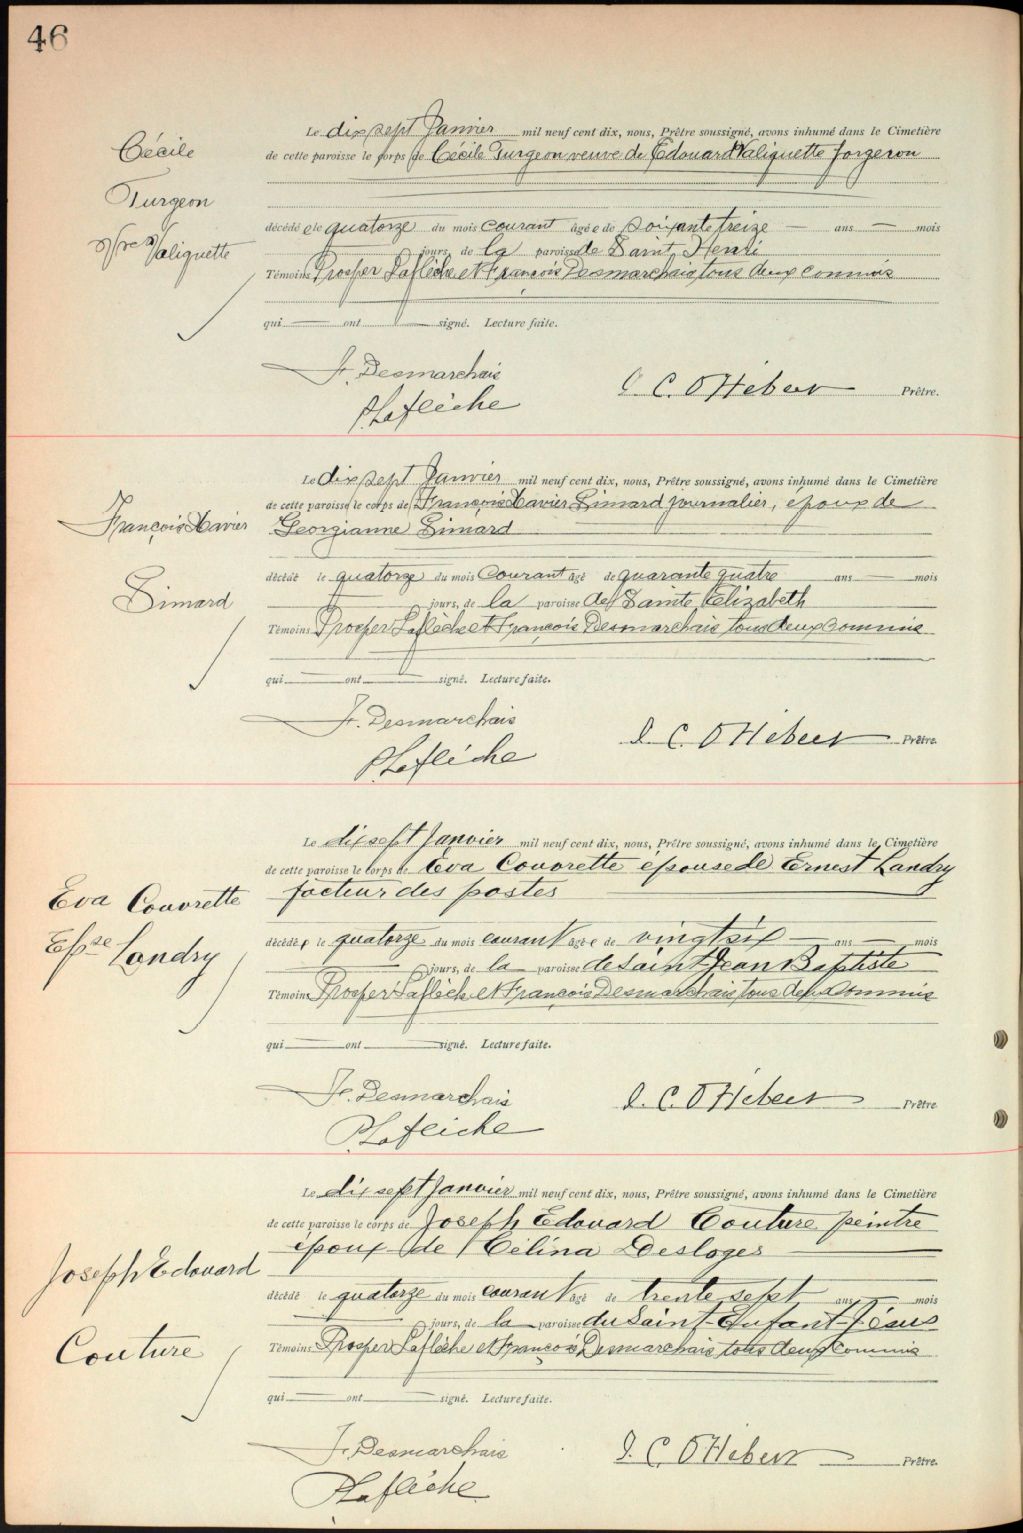 46
Cécile
Turgeon
Vve Valiquette
Le dix sept Janvier mil neuf cent dix, nous, Prêtre soussigné, avons inhumé dans le Cimetière
de cette paroisse le corps de Cécile Turgeon veuve de Edouard Valiquette forgeron
décédée le quatorze du mois courant âgée de soixante treize — ans — mois
jours, de la paroisse de Saint Henri
Témoins Prosper Laflèche et François Desmarchais tous deux commis
qui — ont — signé. Lecture faite.
F. Desmarchais
P. Laflèche
C. O Hébert Prêtre.
François Xavier
Simard
Le dix sept Janvier mil neuf cent dix, nous, Prêtre soussigné, avons inhumé dans le Cimetière
de cette paroisse le corps de François Xavier Simard journalier, epoux de
Georgianne Simard
décédé le quatorze du mois courant âgé de quarante quatre ans — mois
jours, de la paroisse de Sainte Elizabeth
Témoins Prosper Laflèche et François Desmarchais tous deux commis
qui — ont — signé. Lecture faite.
F. Desmarchais
P. Laflèche
C. O Hébert Prêtre.
Eva Couvrette
Epse Landry
Le dix sept Janvier mil neuf cent dix, nous, Prêtre soussigné, avons inhumé dans le Cimetière
de cette paroisse le corps de Eva Couvrette epouse de Ernest Landry
facteur des postes
décédée le quatorze du mois courant âgée de vingt six — ans — mois
jours, de la paroisse de Saint-Jean Baptiste
Témoins Prosper Laflèche et François Desmarchais tous deux commis
qui — ont — signé. Lecture faite.
F. Desmarchais
P. Laflèche
C. O Hébert Prêtre.
Joseph Edouard
Couture
Le dix sept Janvier mil neuf cent dix, nous, Prêtre soussigné, avons inhumé dans le Cimetière
de cette paroisse le corps de Joseph Edouard Couture peintre
époux de Célina Desloges
décédé le quatorze du mois courant âgé de trente sept ans — mois
jours, de la paroisse du Saint-Enfant-Jésus
Témoins Prosper Laflèche et François Desmarchais tous deux commis
qui — ont — signé. Lecture faite.
F. Desmarchais
P. Laflèche
C. O Hébert Prêtre.